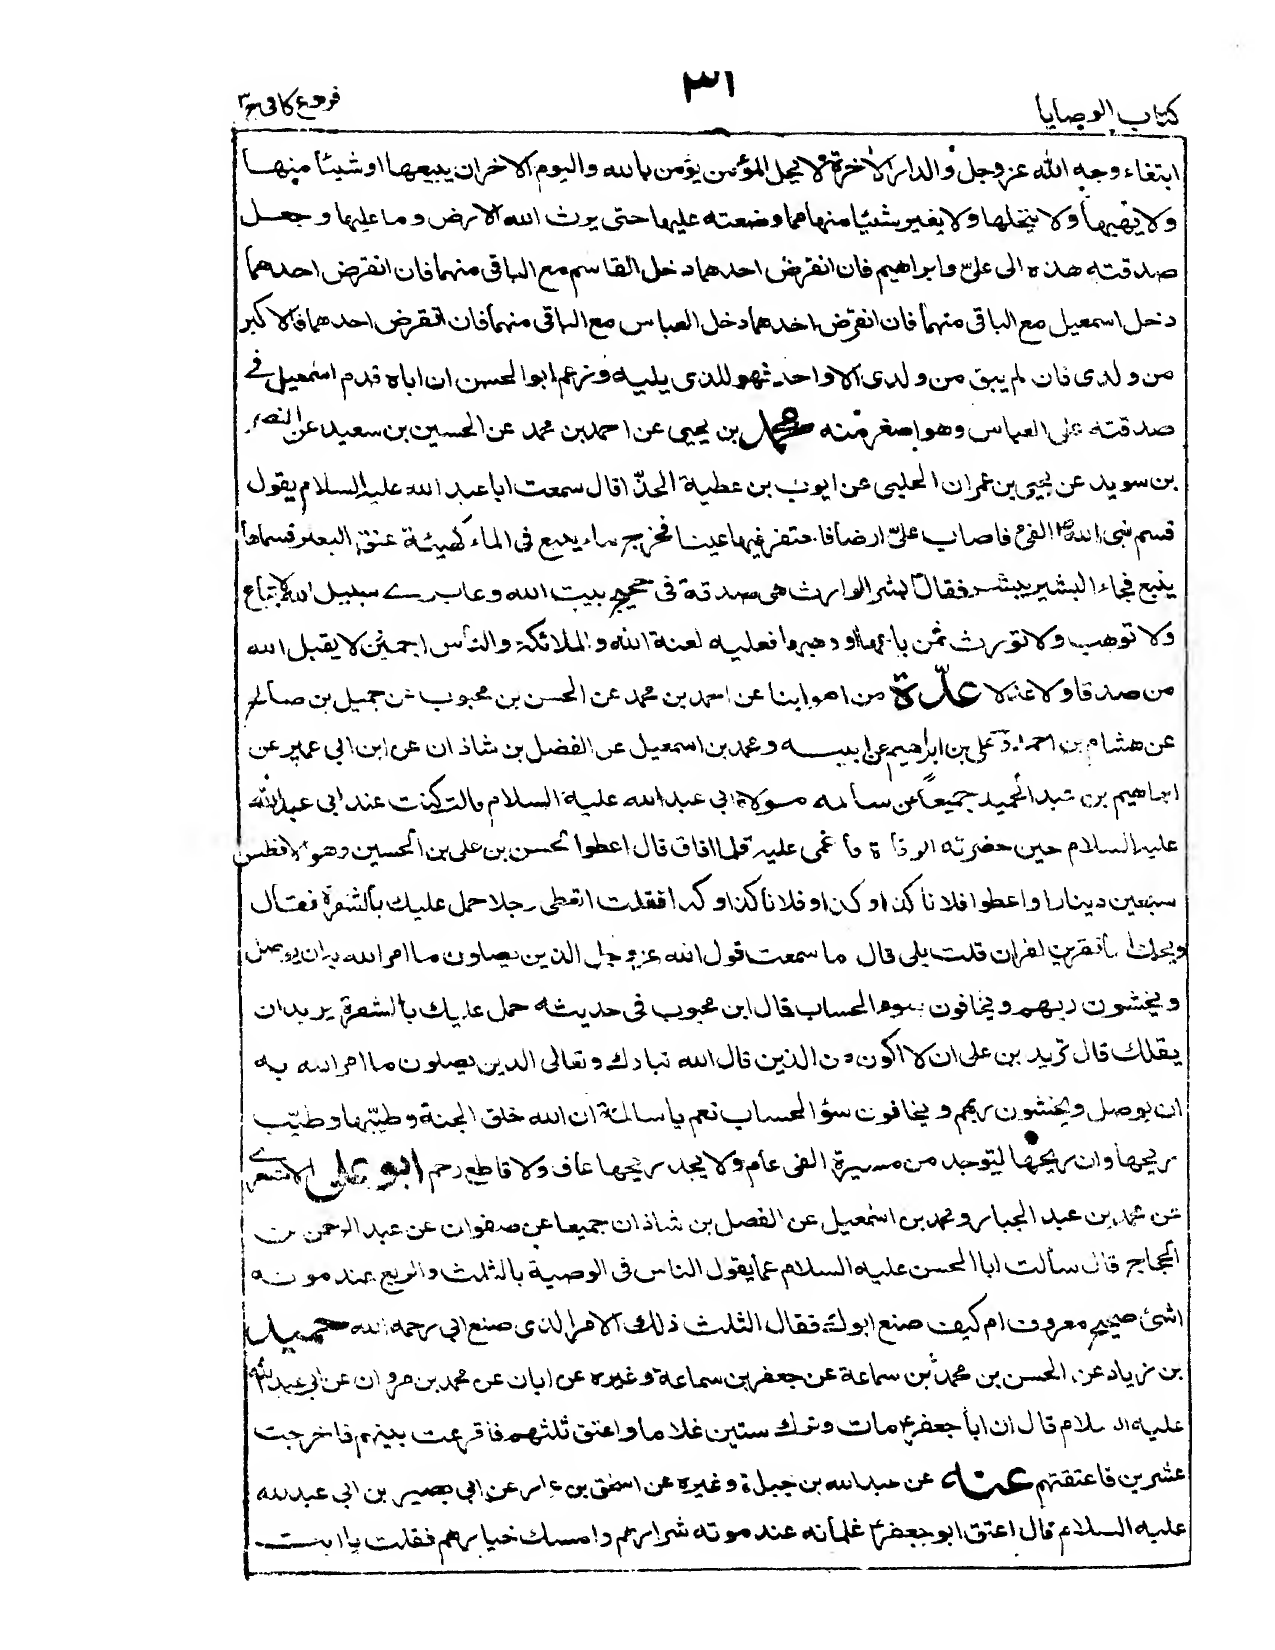 ٣١
كتاب الوصايا
فروع كافى ج٣
ابتغاء وجه الله عز وجل والدار الاخرة ولا يحل لمؤمن يؤمن بالله واليوم الاخران يبيعها اوشيئا منها
ولا يهبها ولا ينحلها ولا يغير شيئا منها مما وضعته عليها حتى يرث الله الارض وما عليها وجعل
صدقته هذه الى على وابراهيم فان انقرض احدهما دخل القاسم مع الباقى منهما فان انقرض احدهما
دخل اسمعيل مع الباقى منهما فان انقرض احدهما دخل العباس مع الباقى منهما فان انقرض احدهما فالاكبر
من ولدى فان لم يبق من ولدى الا واحد فهو للذى يليه وزعم ابو الحسن ان اباه قدم اسمعيل فى
صدقته على العباس وهو اصغر منه محمد بن يحيى عن احمد بن محمد عن الحسين بن سعيد عن النضر
بن سويد عن يحيى بن عمران الحلبى عن ايوب بن عطية الحذّاء قال سمعت ابا عبد الله عليه السلام يقول
قسم نبى الله الفئ فاصاب علىّ ارضا فاحتفر فيها عينا فخرج ماء ينبع فى الماء كهيئة عنق البعير فسماها
ينبع فجاء البشير يبشر فقال بشر الوارث هى صدقة فى حجيج بيت الله وعابرے سبيل الله لا تباع
ولا توهب ولا تورث فمن باعها او وهبها فعليه لعنة الله والملائكة والناس اجمعين لا يقبل الله
من صدقا ولا عدلا عدّة من اصحابنا عن احمد بن محمد عن الحسن بن محبوب عن جميل بن صالح
عن هشام بن احمد وعلى بن ابراهيم عن ابيه ومحمد بن اسمعيل عن الفضل بن شاذان عن ابن ابى عمير عن
ابراهيم بن عبد الحميد جميعا عن سالمه مولاة ابى عبد الله عليه السلام قالت كنت عند ابى عبد الله
عليه السلام حين حضرته الوفاة فاغمى عليه فلما افاق قال اعطوا الحسن بن على بن الحسين وهو الافطس
سبعين دينارا واعطوا فلانا كذا وكذا وفلانا كذا وكذا فقلت اتعطى رجلا حمل عليك بالشفرة فقال
ويحك اما تقرئين القران قلت بلى قال ما سمعت قول الله عز وجل الذين يصلون ما امر الله به ان يوصل
ويخشون ربهم ويخافون سوء الحساب قال ابن محبوب فى حديثه حمل عليك بالشفرة يريد ان
يقتلك قال تريدين على ان لا اكون من الذين قال الله تبارك وتعالى الذين يصلون ما امر الله به
ان يوصل ويخشون ربهم ويخافون سوء الحساب نعم يا سالمة ان الله خلق الجنة وطيّبها وطيّب
ريحها وان ريحها ليتوجد من مسيرة الفى عام ولا يجد ريحها عاق ولا قاطع رحم ابو على الاشعرے
عن محمد بن عبد الجبار ومحمد بن اسمعيل عن الفضل بن شاذان جميعا عن صفوان عن عبد الرحمن بن
الحجاج قال سألت ابا الحسن عليه السلام عما يقول الناس فى الوصية بالثلث والربع عند موته
اشئ صحيح معروف ام كيف صنع ابوك فقال الثلث ذلك الامر الذى صنع ابى رحمه الله حميد
بن زياد عن الحسن بن محمد بن سماعة عن جعفر بن سماعة وغيره عن ابان عن محمد بن مروان عن ابى عبد الله
عليه السلام قال ان ابا جعفر ع مات وترك ستين غلاما واعتق ثلثهم فاقرعت بينهم فاخرجت
عشرين فاعتقتهم عنه عن عبد الله بن جبلة وغيره عن اسحق بن عمار عن ابى بصير بن ابى عبد الله
عليه السلام قال اعتق ابو جعفر ع غلمانه عند موته شرارهم وامسك خيارهم فقلت يا ابت